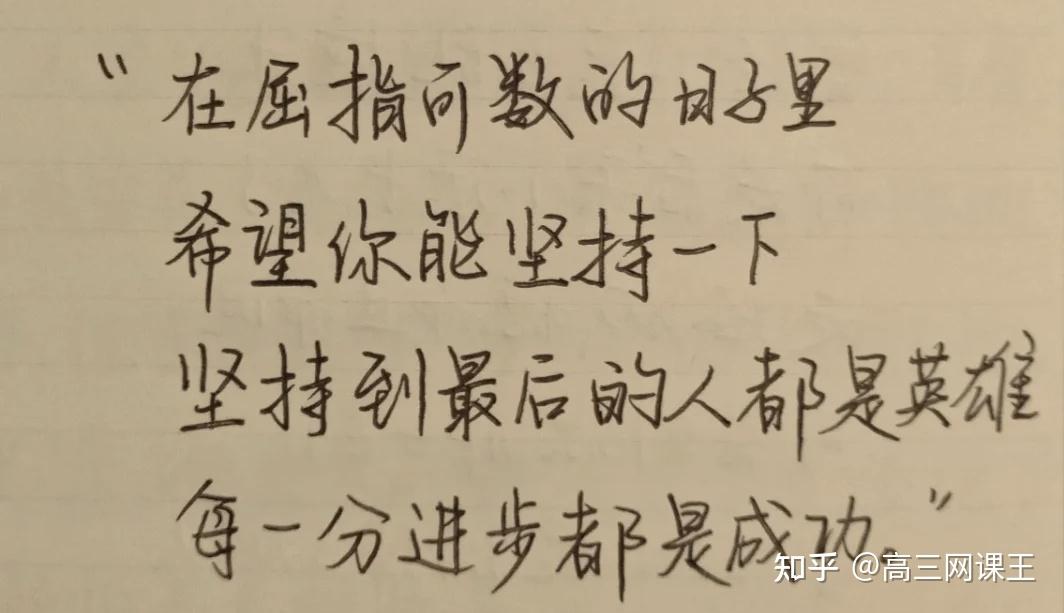 “在屈指可数的日子里
希望你能坚持一下
坚持到最后的人都是英雄
每一分进步都是成功。”
知乎 @高三网课王